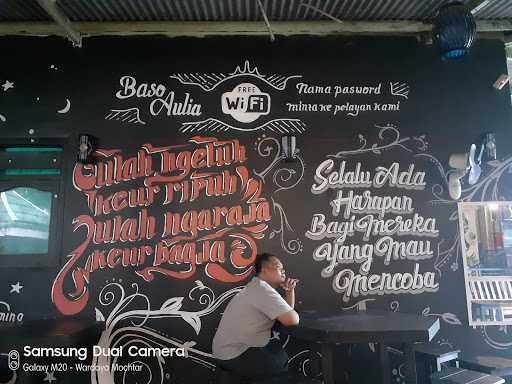 Baso
Aulia
FREE
WiFi
Nama pasword
minta ke pelayan kami
Ulah ngeluh
keur ripuh
Ulah ngaraja
keur bagja
Selalu Ada
Harapan
Bagi Mereka
Yang Mau
Mencoba
Samsung Dual Camera
Galaxy M20 - Wardaya Mochtar